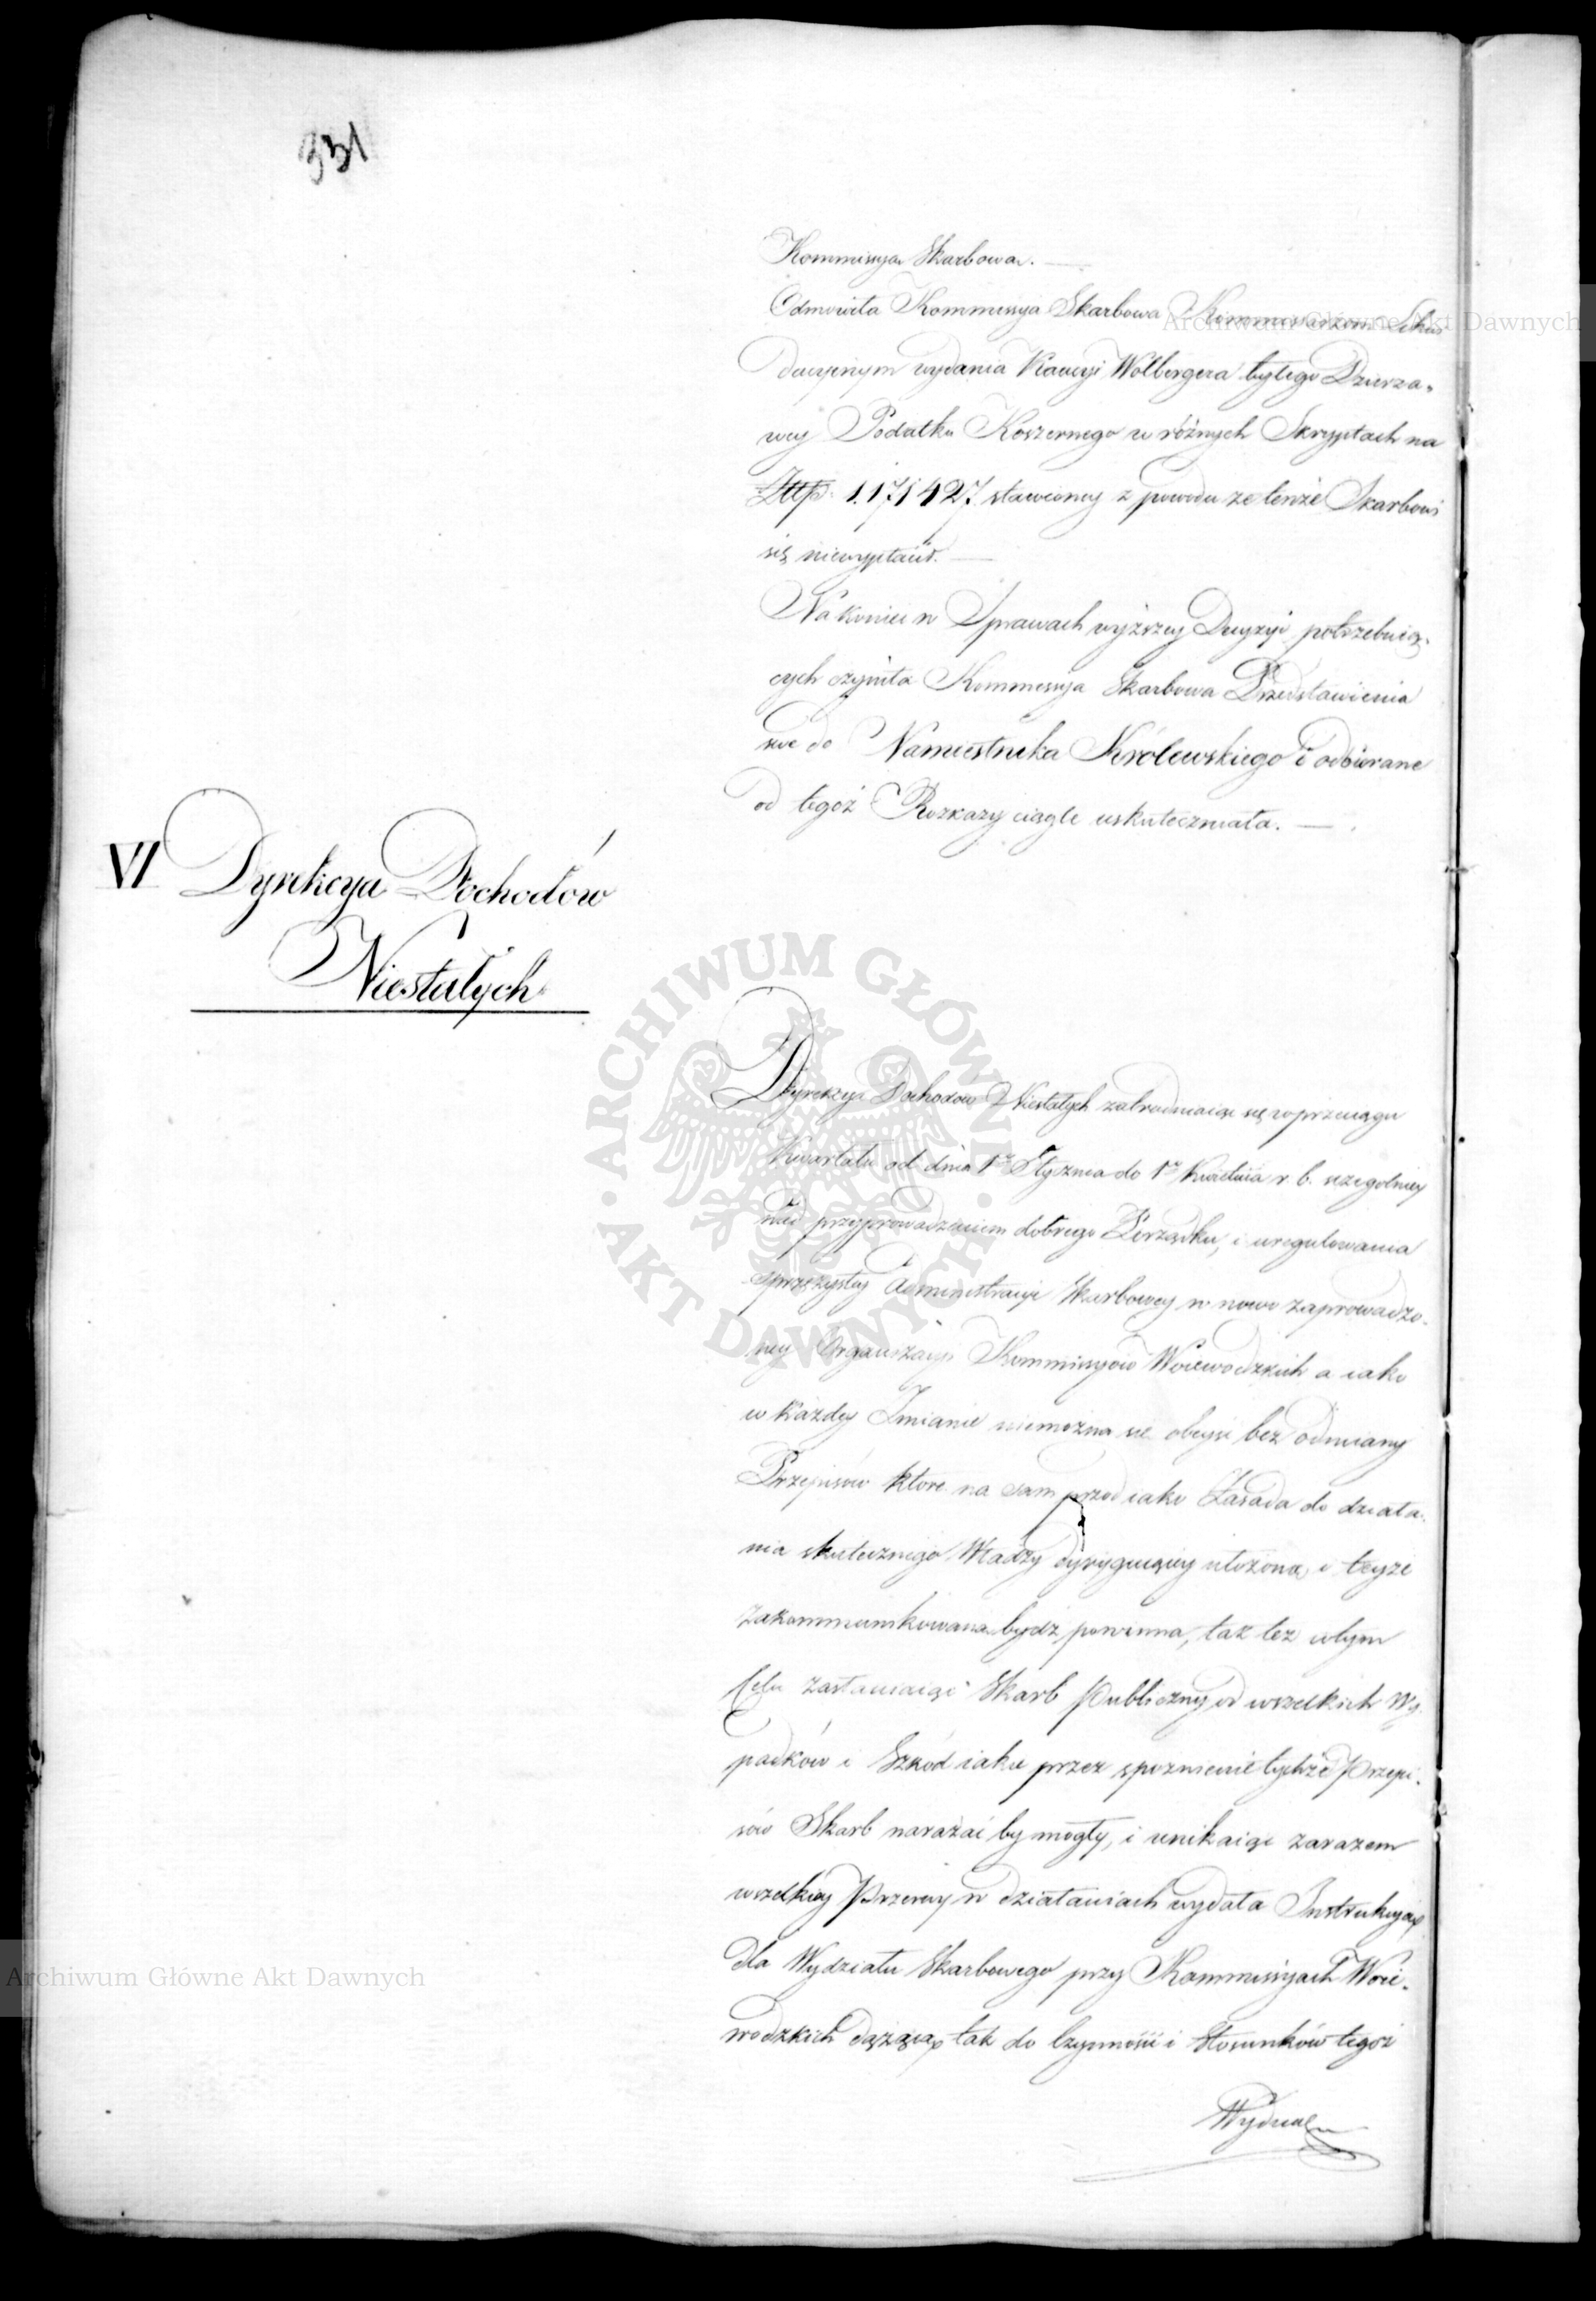 331
Kommissya Skarbowa. —
Odmówiła Kommissya Skarbowa Kommissarzom Likwi
dacyinym wydania Kaucyi Wolbergera byłego Dzierża„
wcy Podatku Koszernego w różnych Skryptach na
Złłp: 1.171427. stawioney z powodu że tenże Skarbowi
się niewypłacił. —
Na koniec w Sprawach wyższey Decyzyi potrzebuią„
cych czyniła Kommissya Skarbowa Przedstawienia
swe do Namiestnika Królewskiego i odbierane
od tegoż Rozkazy ciągle uskuteczniała. —
VI Dyrekcya Dochodów
Niestałych
Dyrekcya Dochodów Niestałych zatrudniaiąc się w przeciągu
Kwartału od dnia 1go Stycznia do 1go Kwietnia r. b. szczegolniey
nad przyprowadzeniem dobrego Porządku, i uregulowania
sprężystey Administracyi Skarbowey w nowo zaprowadzo„
ney Organizacyi Kommissyiów Woiewodzkich a iako
w każdey Zmianie niemożna się obeyść bez odmiany
Przepisów które na sam przod iako Zasada do działa„
nia skutecznego Władzy dyryguiącey ułożona, i teyże
zakommunikowana bydź powinna, tak też w tym
Celu zasłaniaiąc Skarb Publiczny od wszelkich Wy„
padków i Szkód iakie przez spoznienie tychże Przepi„
sów Skarb narażać by mogły, i unikaiąc zarazem
wszelkiey Przerwy w działaniach wydała Instrukcyią
dla Wydziału Skarbowego przy Kommissyiach Woie„
wodzkich dążącą tak do Czynności i Stosunków tegoż
Wydziału
Archiwum Główne Akt Dawnych
Archiwum Główne Akt Dawnych
ARCHIWUM GŁÓWNE AKT DAWNYCH